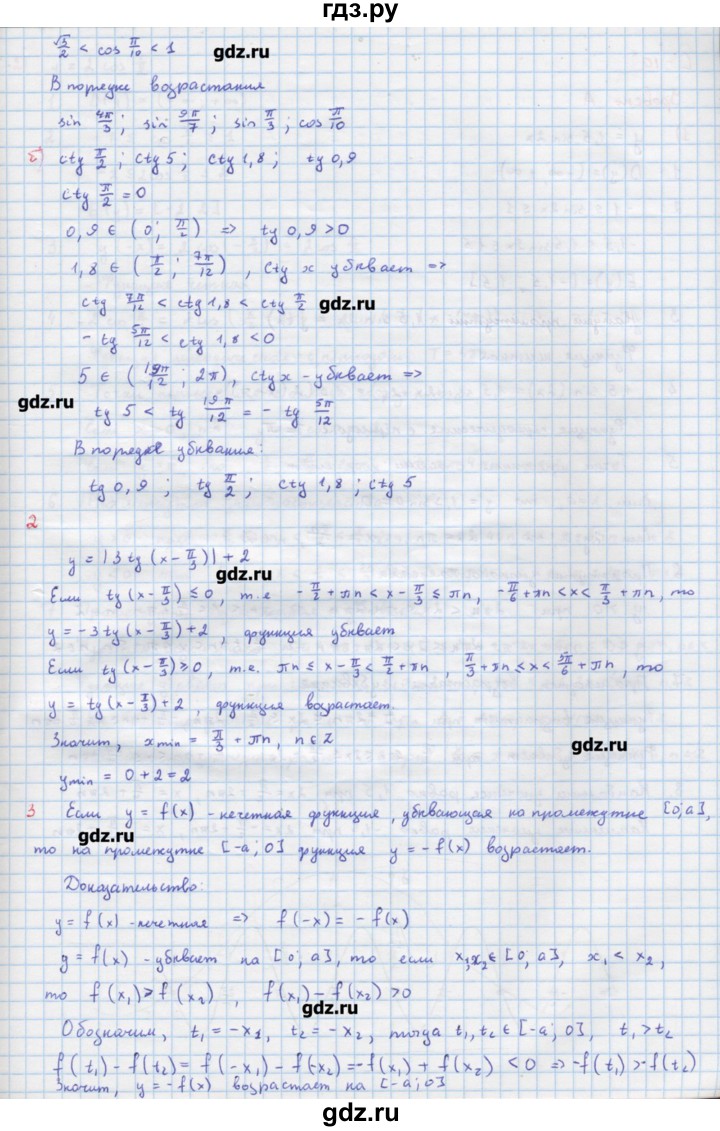 гдз.ру
√3/2 < cos π/10 < 1
gdz.ru
В порядке возрастания
sin 4π/3 ; sin 9π/7 ; sin π/3 ; cos π/10
б) ctg π/2 ; ctg 5 ; ctg 1,8 ; tg 0,9
ctg π/2 = 0
0,9 ∈ (0; π/2) => tg 0,9 > 0
1,8 ∈ (π/2 ; 7π/12) , ctg x убывает =>
ctg 7π/12 < ctg 1,8 < ctg π/2
gdz.ru
- tg 5π/12 < ctg 1,8 < 0
5 ∈ (19π/12 ; 2π), ctg x - убывает =>
gdz.ru
tg 5 < tg 19π/12 = - tg 5π/12
В порядке убывания:
tg 0,9 ; tg π/2 ; ctg 1,8 ; ctg 5
2
y = |3 tg (x - π/3)| + 2
gdz.ru
Если tg (x - π/3) ≤ 0 , т.е - π/2 + πn < x - π/3 ≤ πn, -π/6 + πn < x < π/3 + πn, то
y = -3 tg (x - π/3) + 2 , функция убывает
Если tg (x - π/3) ≥ 0 , т.е. πn ≤ x - π/3 < π/2 + πn , π/3 + πn ≤ x < 5π/6 + πn , то
y = tg (x - π/3) + 2 , функция возрастает.
Значит, xmin = π/3 + πn, n ∈ Z
gdz.ru
ymin = 0 + 2 = 2
3 Если y = f(x) - нечетная функция, убывающая на промежутке [0; a],
gdz.ru
то на промежутке [-a; 0] функция y = -f(x) возрастает.
Доказательство:
y = f(x) - нечетная => f(-x) = - f(x)
y = f(x) - убывает на [0; a], то если x1, x2 ∈ [0, a], x1 < x2,
то f(x1) > f(x2) , f(x1) - f(x2) > 0
gdz.ru
Обозначим, t1 = -x1, t2 = -x2, тогда t1, t2 ∈ [-a; 0], t1 > t2
f(t1) - f(t2) = f(-x1) - f(-x2) = -f(x1) + f(x2) < 0 => -f(t1) > -f(t2)
Значит, y = -f(x) возрастает на [-a; 0]
gdz.ru